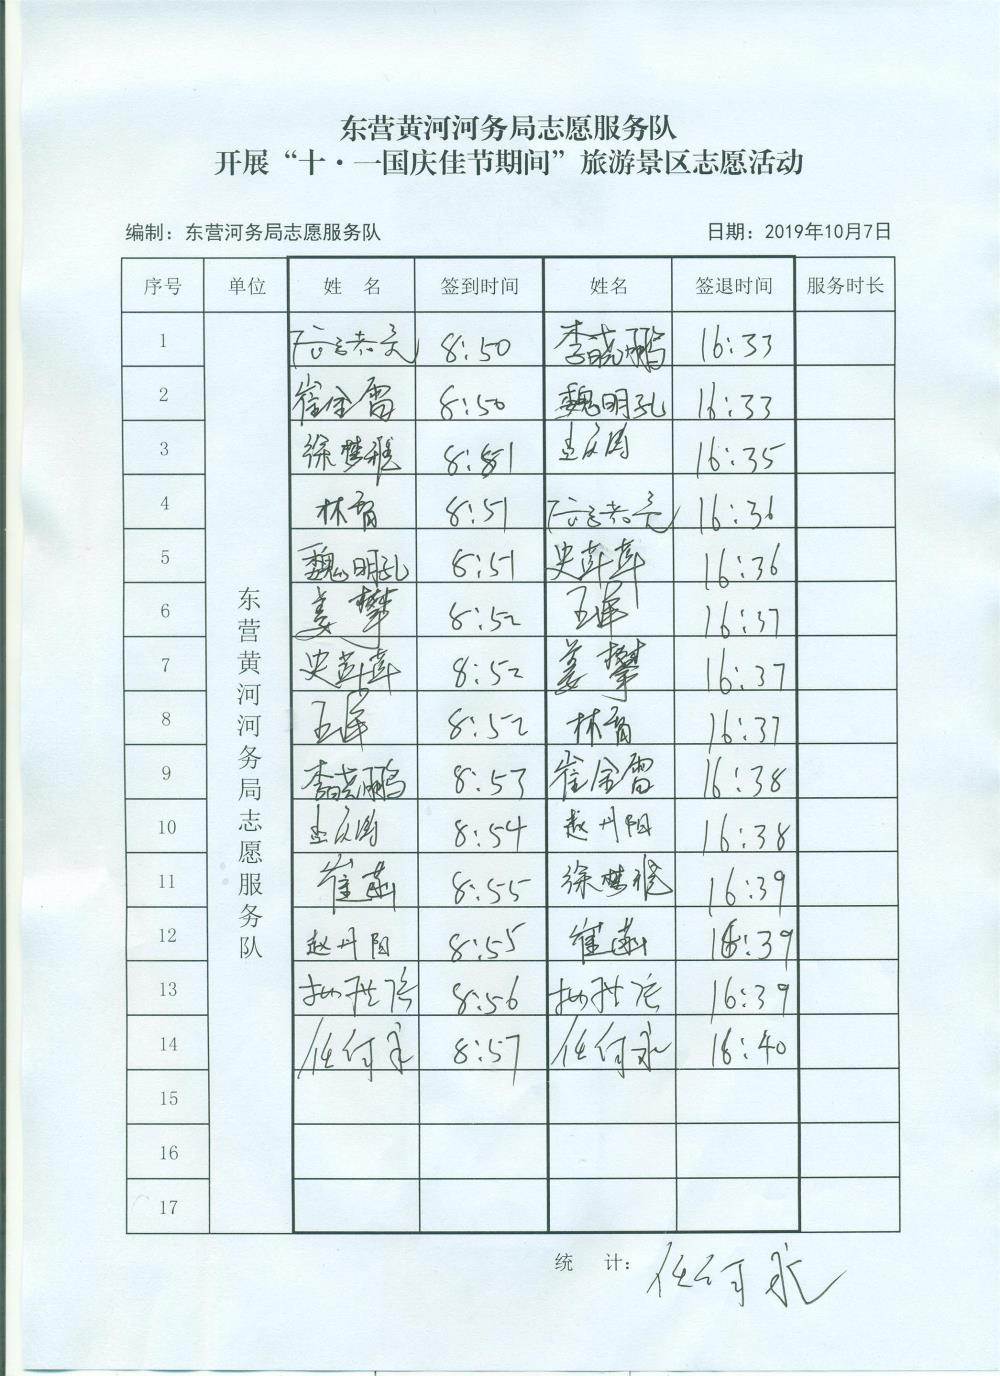 东营黄河河务局志愿服务队
开展“十·一国庆佳节期间”旅游景区志愿活动
编制：东营河务局志愿服务队 日期：2019年10月7日
序号 单位 姓 名 签到时间 姓名 签退时间 服务时长
东营黄河河务局志愿服务队
1 8:50 李晓鹏 16:33
2 崔金雷 8:50 魏明孔 16:33
3 徐梦雅 8:51 16:35
4 林育 8:51 16:36
5 魏明孔 8:51 史萍萍 16:36
6 姜攀 8:52 16:37
7 史萍萍 8:52 姜攀 16:37
8 8:52 林育 16:37
9 李晓鹏 8:53 崔金雷 16:38
10 8:54 赵丹阳 16:38
11 崔菡 8:55 徐梦雅 16:39
12 赵丹阳 8:55 崔菡 16:39
13 8:56 16:39
14 任何永 8:57 任何永 16:40
15
16
17
统 计： 任何永